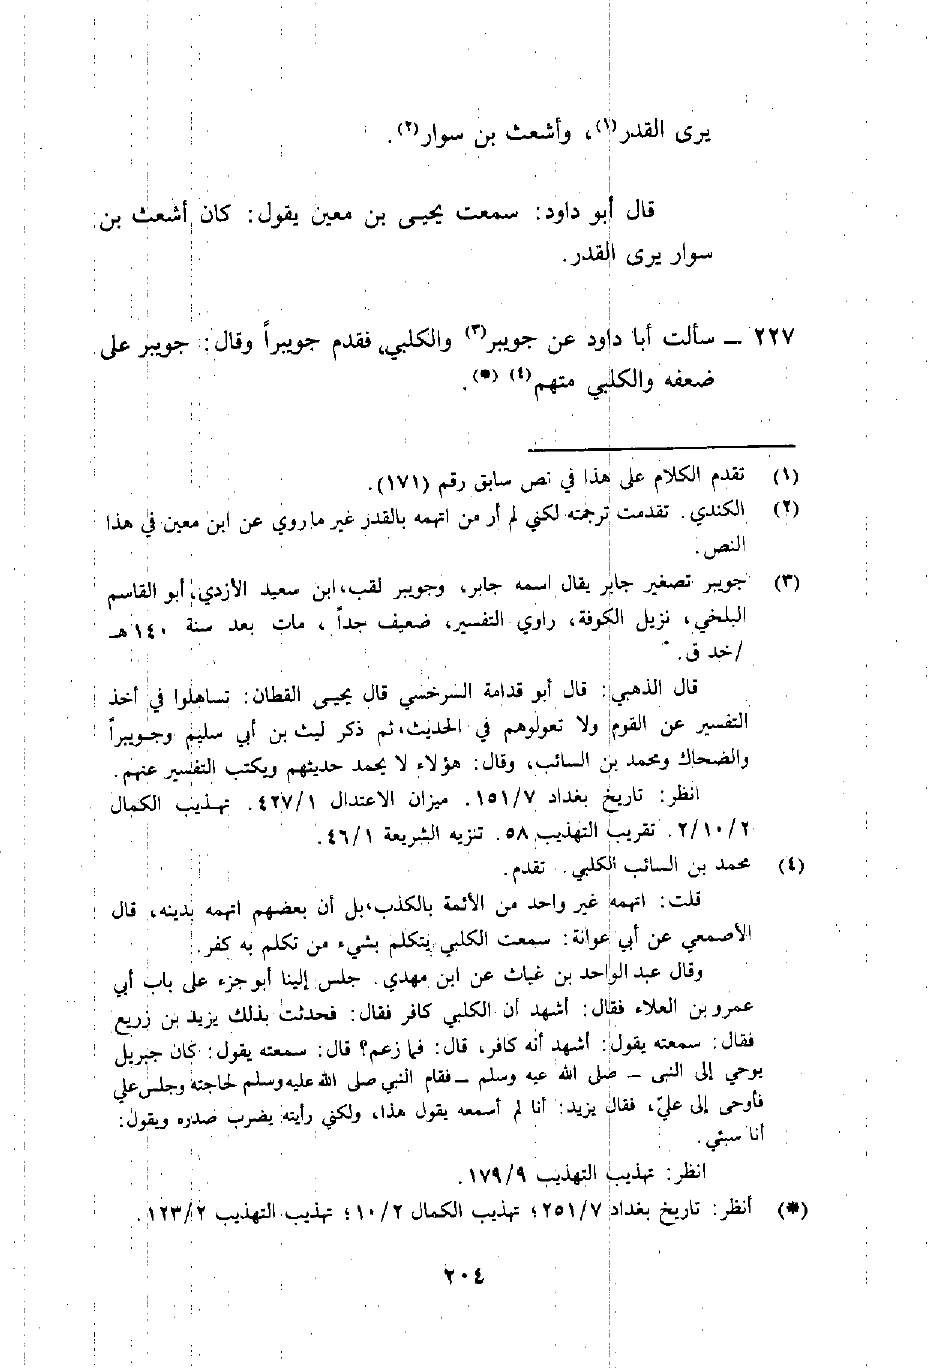 يرى القدر(١)، وأشعث بن سوار(٢).
قال أبو داود: سمعت يحيى بن معين يقول: كان أشعث بن
سوار يرى القدر.
٢٢٧ ــ سألت أبا داود عن جويبر(٣) والكلبي، فقدم جويبراً وقال: جويبر على
ضعفه والكلبي متهم(٤) (*).
(١) تقدم الكلام على هذا في نص سابق رقم (١٧١).
(٢) الكندي. تقدمت ترجمته لكني لم أر من اتهمه بالقدر غير ما روي عن ابن معين في هذا
النص.
(٣) جويبر تصغير جابر يقال اسمه جابر، وجويبر لقب، ابن سعيد الأزدي، أبو القاسم
البلخي، نزيل الكوفة، راوي التفسير، ضعيف جداً، مات بعد سنة ١٤٠هـ
/خد ق.
قال الذهبي: قال أبو قدامة السرخسي قال يحيى القطان: تساهلوا في أخذ
التفسير عن القوم ولا تعولوهم في الحديث، ثم ذكر ليث بن أبي سليم وجويبراً
والضحاك ومحمد بن السائب، وقال: هؤلاء لا يحمد حديثهم ويكتب التفسير عنهم.
انظر: تاريخ بغداد ١٥١/٧. ميزان الاعتدال ٤٢٧/١. تهذيب الكمال
٢/١٠/٢. تقريب التهذيب ٥٨. تنزيه الشريعة ٤٦/١.
(٤) محمد بن السائب الكلبي. تقدم.
قلت: اتهمه غير واحد من الأئمة بالكذب، بل أن بعضهم اتهمه بدينه، قال
الأصمعي عن أبي عوانة: سمعت الكلبي يتكلم بشيء من تكلم به كفر.
وقال عبد الواحد بن غياث عن ابن مهدي. جلس إلينا أبو جزء على باب أبي
عمرو بن العلاء فقال: أشهد أن الكلبي كافر فقال: فحدثت بذلك يزيد بن زريع
فقال: سمعته يقول: أشهد أنه كافر، قال: فما زعم؟ قال: سمعته يقول: كان جبريل
يوحي إلى النبى ــ صلى الله عيه وسلم ــ فقام النبي صلى الله عليه وسلم لحاجته وجلس علي
فأوحى إلى عليّ، فقال يزيد: أنا لم أسمعه يقول هذا، ولكني رأيته يضرب صدره ويقول:
أنا سبئي.
انظر: تهذيب التهذيب ١٧٩/٩.
(*) أنظر: تاريخ بغداد ٢٥١/٧؛ تهذيب الكمال ١٠/٢؛ تهذيب التهذيب ١٢٣/٢.
٢٠٤